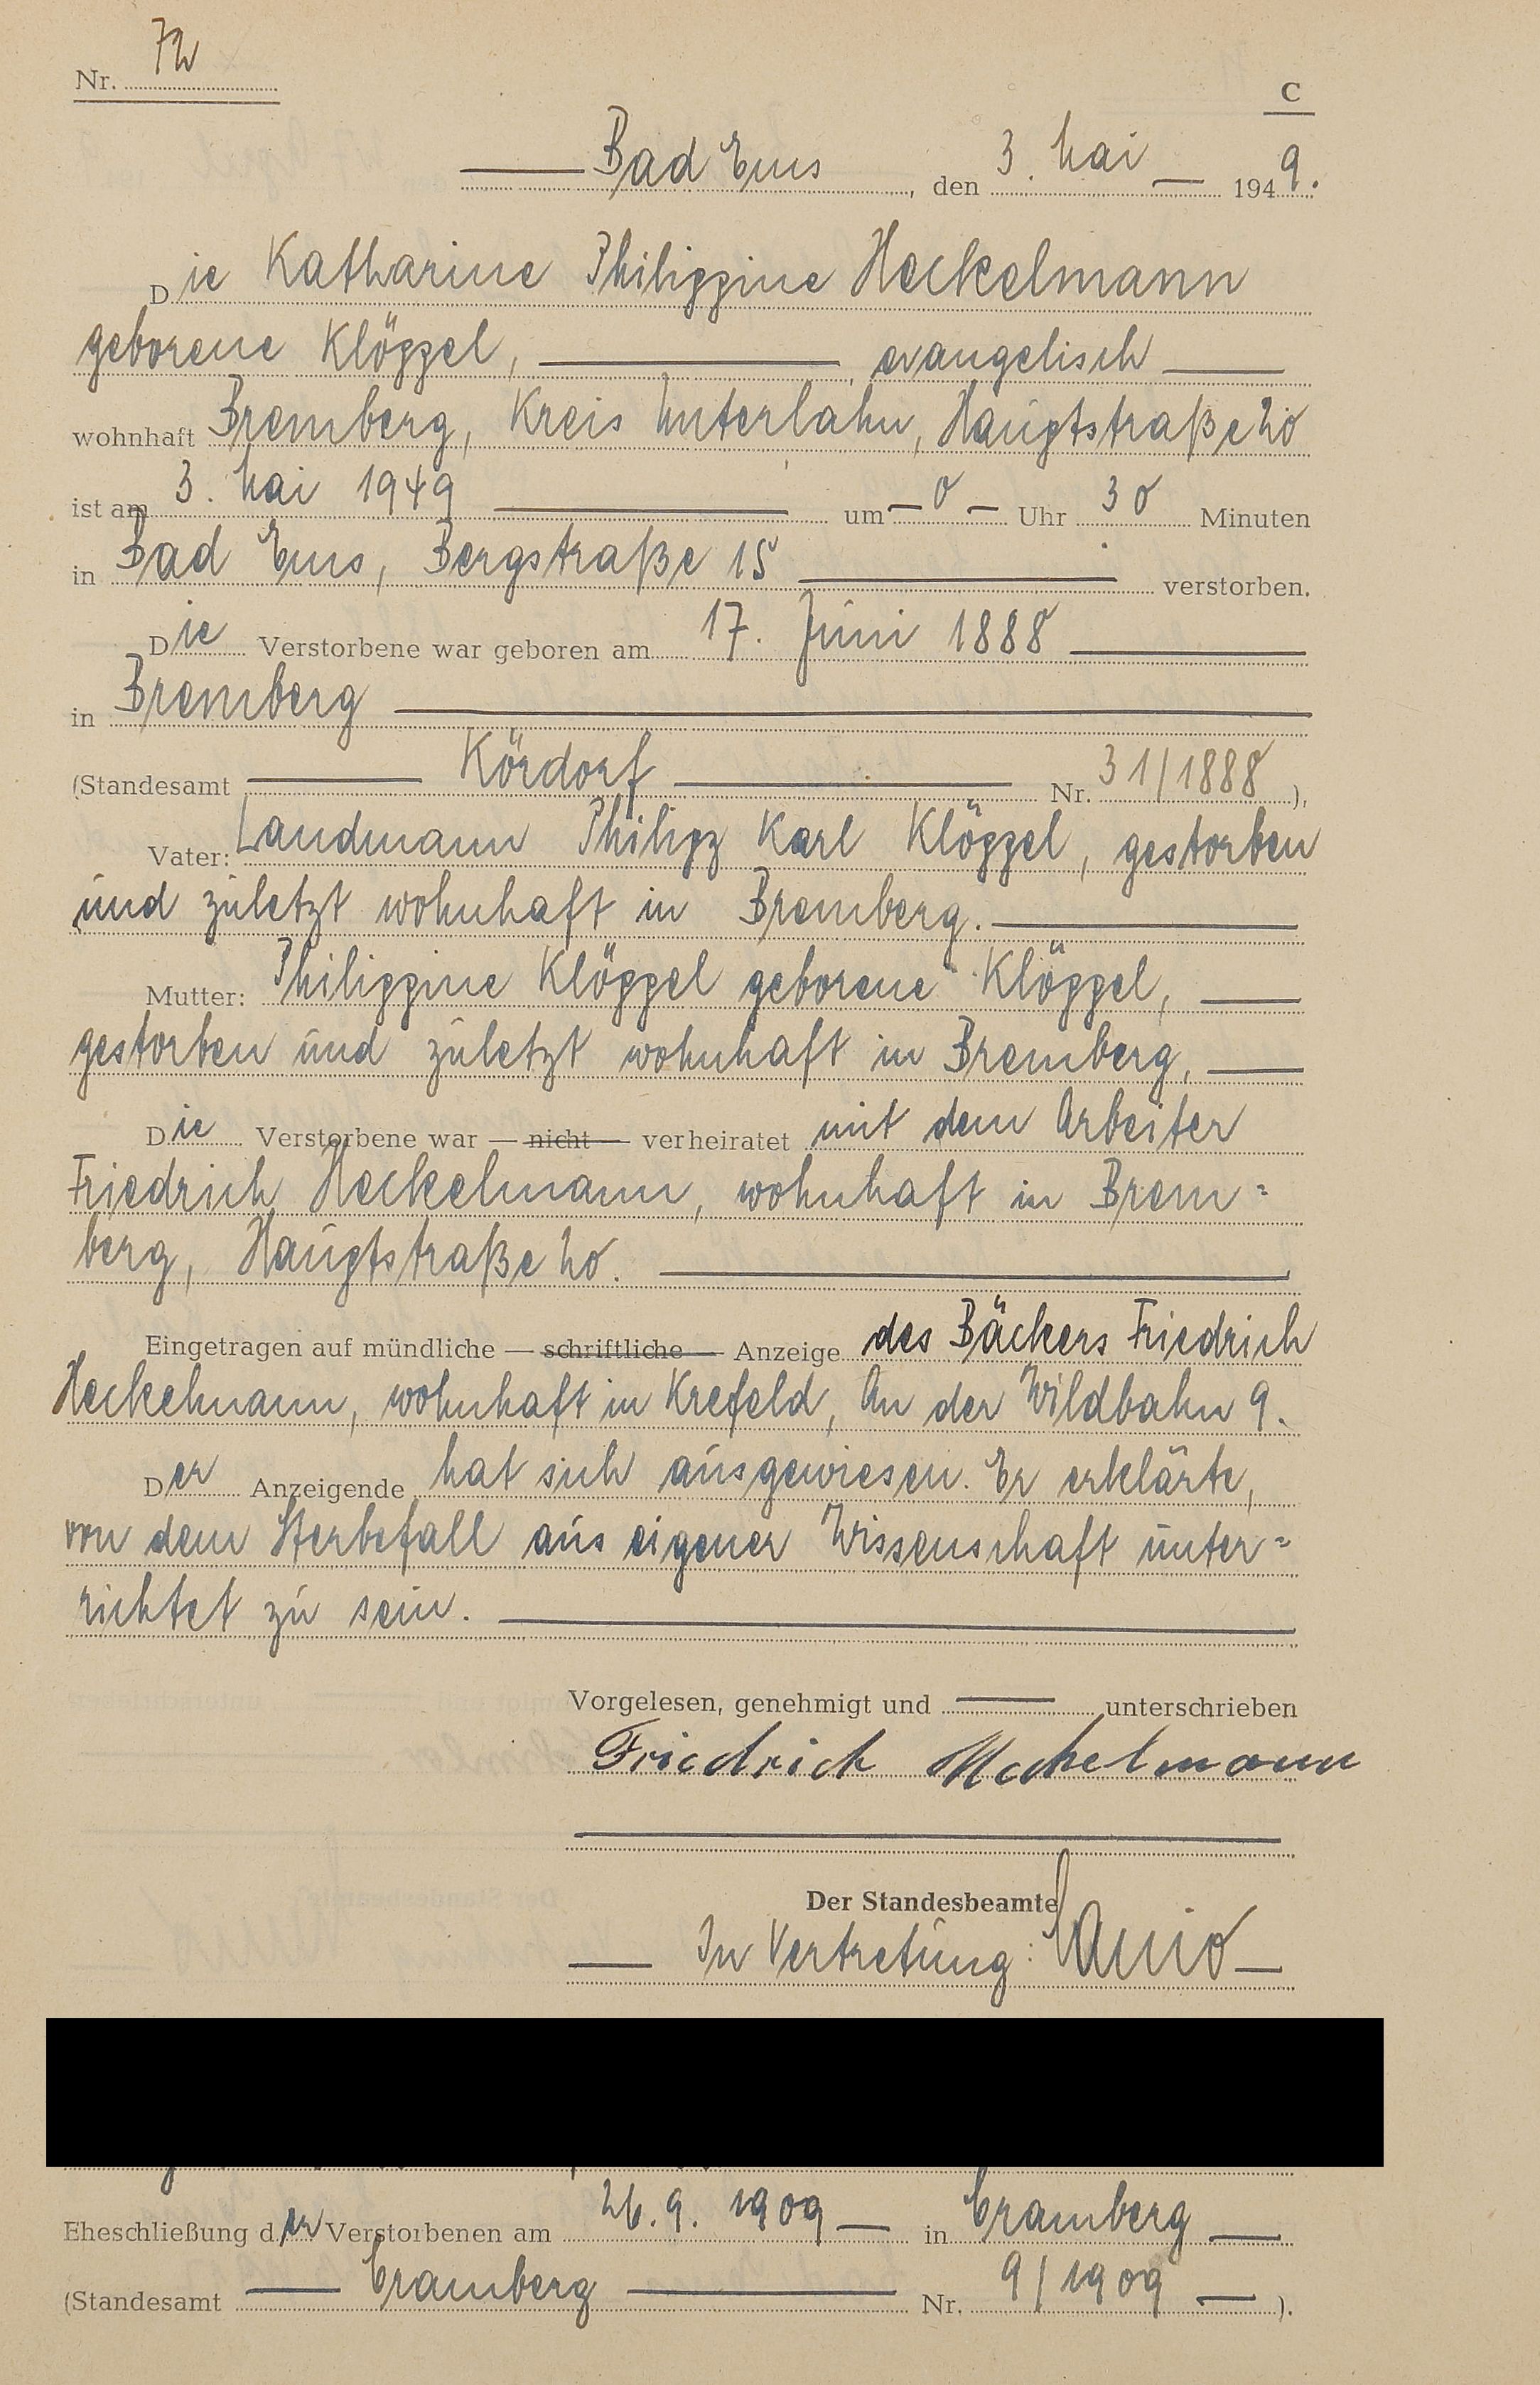 Nr. 72
C
Bad Ems, den 3. Mai 1949.
Die Katharine Philippine Heckelmann
geborene Klöppel, evangelisch
wohnhaft Bremberg, Kreis Unterlahn, Hauptstraße 20
ist am 3. Mai 1949 um 0 Uhr 30 Minuten
in Bad Ems, Bergstraße 15 verstorben.
Die Verstorbene war geboren am 17. Juni 1888
in Bremberg
(Standesamt Kördorf Nr. 31/1888),
Vater: Landmann Philipp Karl Klöppel, gestorben
und zuletzt wohnhaft in Bremberg.
Mutter: Philippine Klöppel geborene Klöppel,
gestorben und zuletzt wohnhaft in Bremberg,
Die Verstorbene war — nicht — verheiratet mit dem Arbeiter
Friedrich Heckelmann, wohnhaft in Brem=
berg, Hauptstraße 20.
Eingetragen auf mündliche — schriftliche — Anzeige des Bäckers Friedrich
Heckelmann, wohnhaft in Krefeld, An der Wildbahn 9.
Der Anzeigende hat sich ausgewiesen. Er erklärte,
von dem Sterbefall aus eigener Wissenschaft unter=
richtet zu sein.
Vorgelesen, genehmigt und unterschrieben
Friedrich Heckelmann
Der Standesbeamte
In Vertretung:
Eheschließung der Verstorbenen am 26. 9. 1909 in Cramberg
(Standesamt Cramberg Nr. 9/1909).